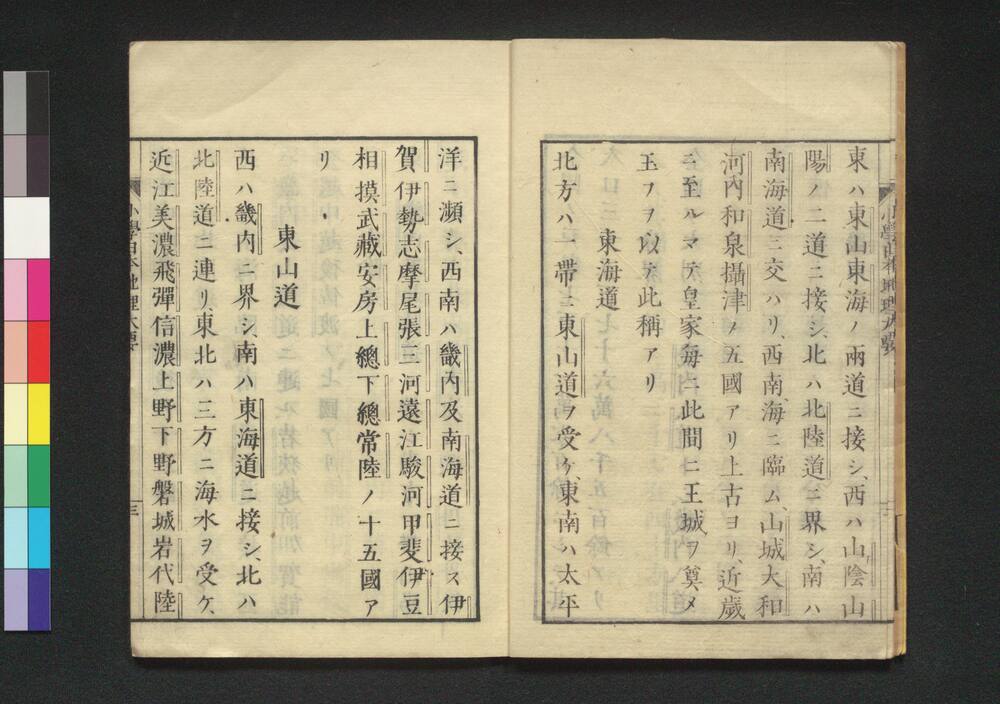 東ハ東山東海ノ兩道ニ接シ、西ハ山陰山
陽ノ二道ニ接シ、北ハ北陸道ニ界シ、南ハ
南海道ニ交ハリ、西南海ニ臨ム、山城大和
河內和泉攝津ノ五國アリ上古ヨリ、近歲
ニ至ルマテ皇家每ニ此間ニ王城ヲ奠メ
玉フヲ以テ此稱アリ
東海道
北方ハ一帶ニ東山道ヲ受ケ、東南ハ太平
洋ニ瀕シ、西南ハ畿內及南海道ニ接ス伊
賀伊勢志摩尾張三河遠江駿河甲斐伊豆
相摸武藏安房上總下總常陸ノ十五國ア
リ
東山道
西ハ畿內ニ界シ、南ハ東海道ニ接シ、北ハ
北陸道ニ連リ、東北ハ三方ニ海水ヲ受ケ、
近江美濃飛彈信濃上野下野磐城岩代陸
小學日本地理大要
三